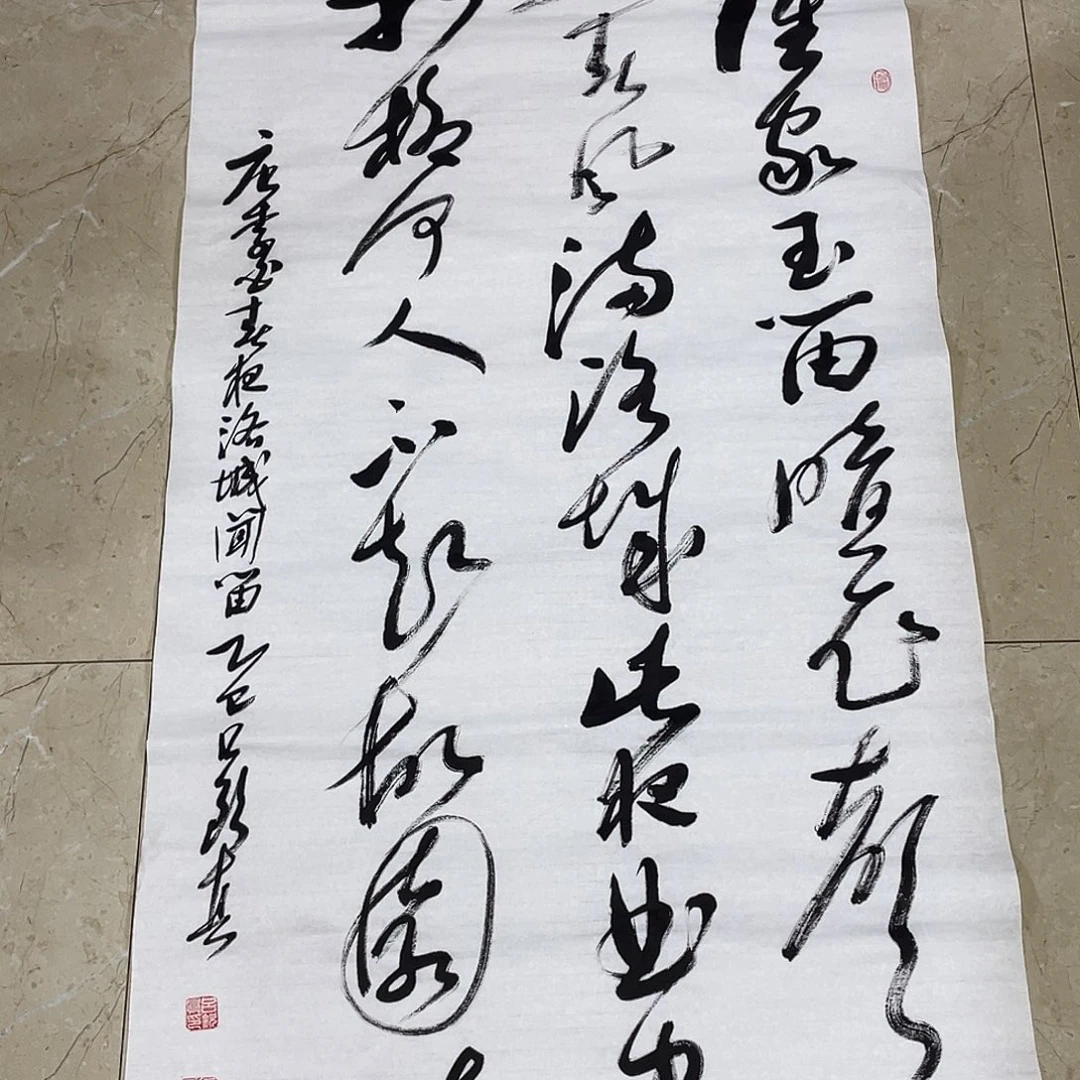 誰家玉笛暗飛聲
春風滿洛城此夜曲中
折柳何人不起故園
唐李白春夜洛城聞笛乙巳吕